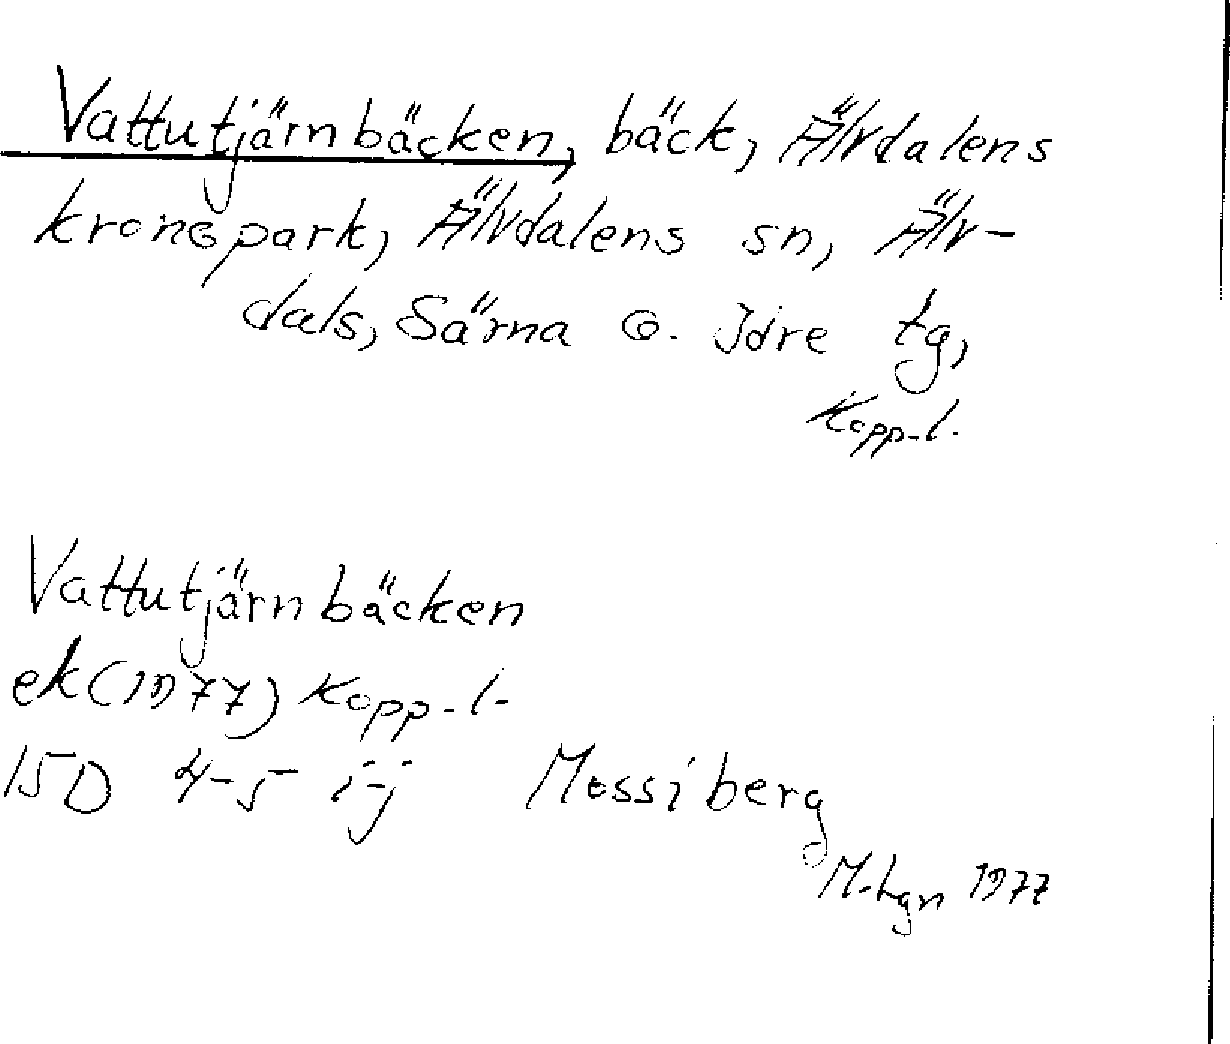 Vattutjärnbäcken, bäck, Älvdalens
kronopark, Älvdalens sn, Älv-
dals, Särna o. Idre tg,
Kopp.l.
Vattutjärnbäcken
ek (1977) Kopp.l.
15D 4-5 i-j Mossiberg
M.hgn 1977